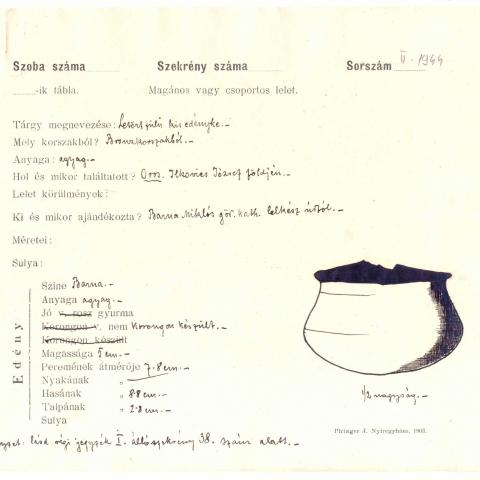 Szoba száma Szekrény száma Sorszám II. 1944
-ik tábla. Magános vagy csoportos lelet.
Tárgy megnevezése: Letört fülü kis edényke.-
Mely korszakból? Bronzkorszakból.-
Anyaga: agyag.-
Hol és mikor találtatott? Oros. Ilkovics József földjén.-
Lelet körülmények:
Ki és mikor ajándékozta? Barna Miklós gör. kath. lelkész úrtól.-
Méretei:
Sulya:
Edény
Szine Barna.-
Anyaga agyag.-
Jó v. rosz gyurma
Korongon v. nem Korongon készült.-
Korongon készült
Magassága 5 cm.-
Peremének átmérője 7.8 cm.-
Nyakának „
Hasának „ 8.8 cm.-
Talpának „ 2.8 cm.-
Sulya
1/2 nagyság.-
Piringer J. Nyiregyháza, 1903.
lásd régi jegyzék I. állószekrény 38. szám alatt.-